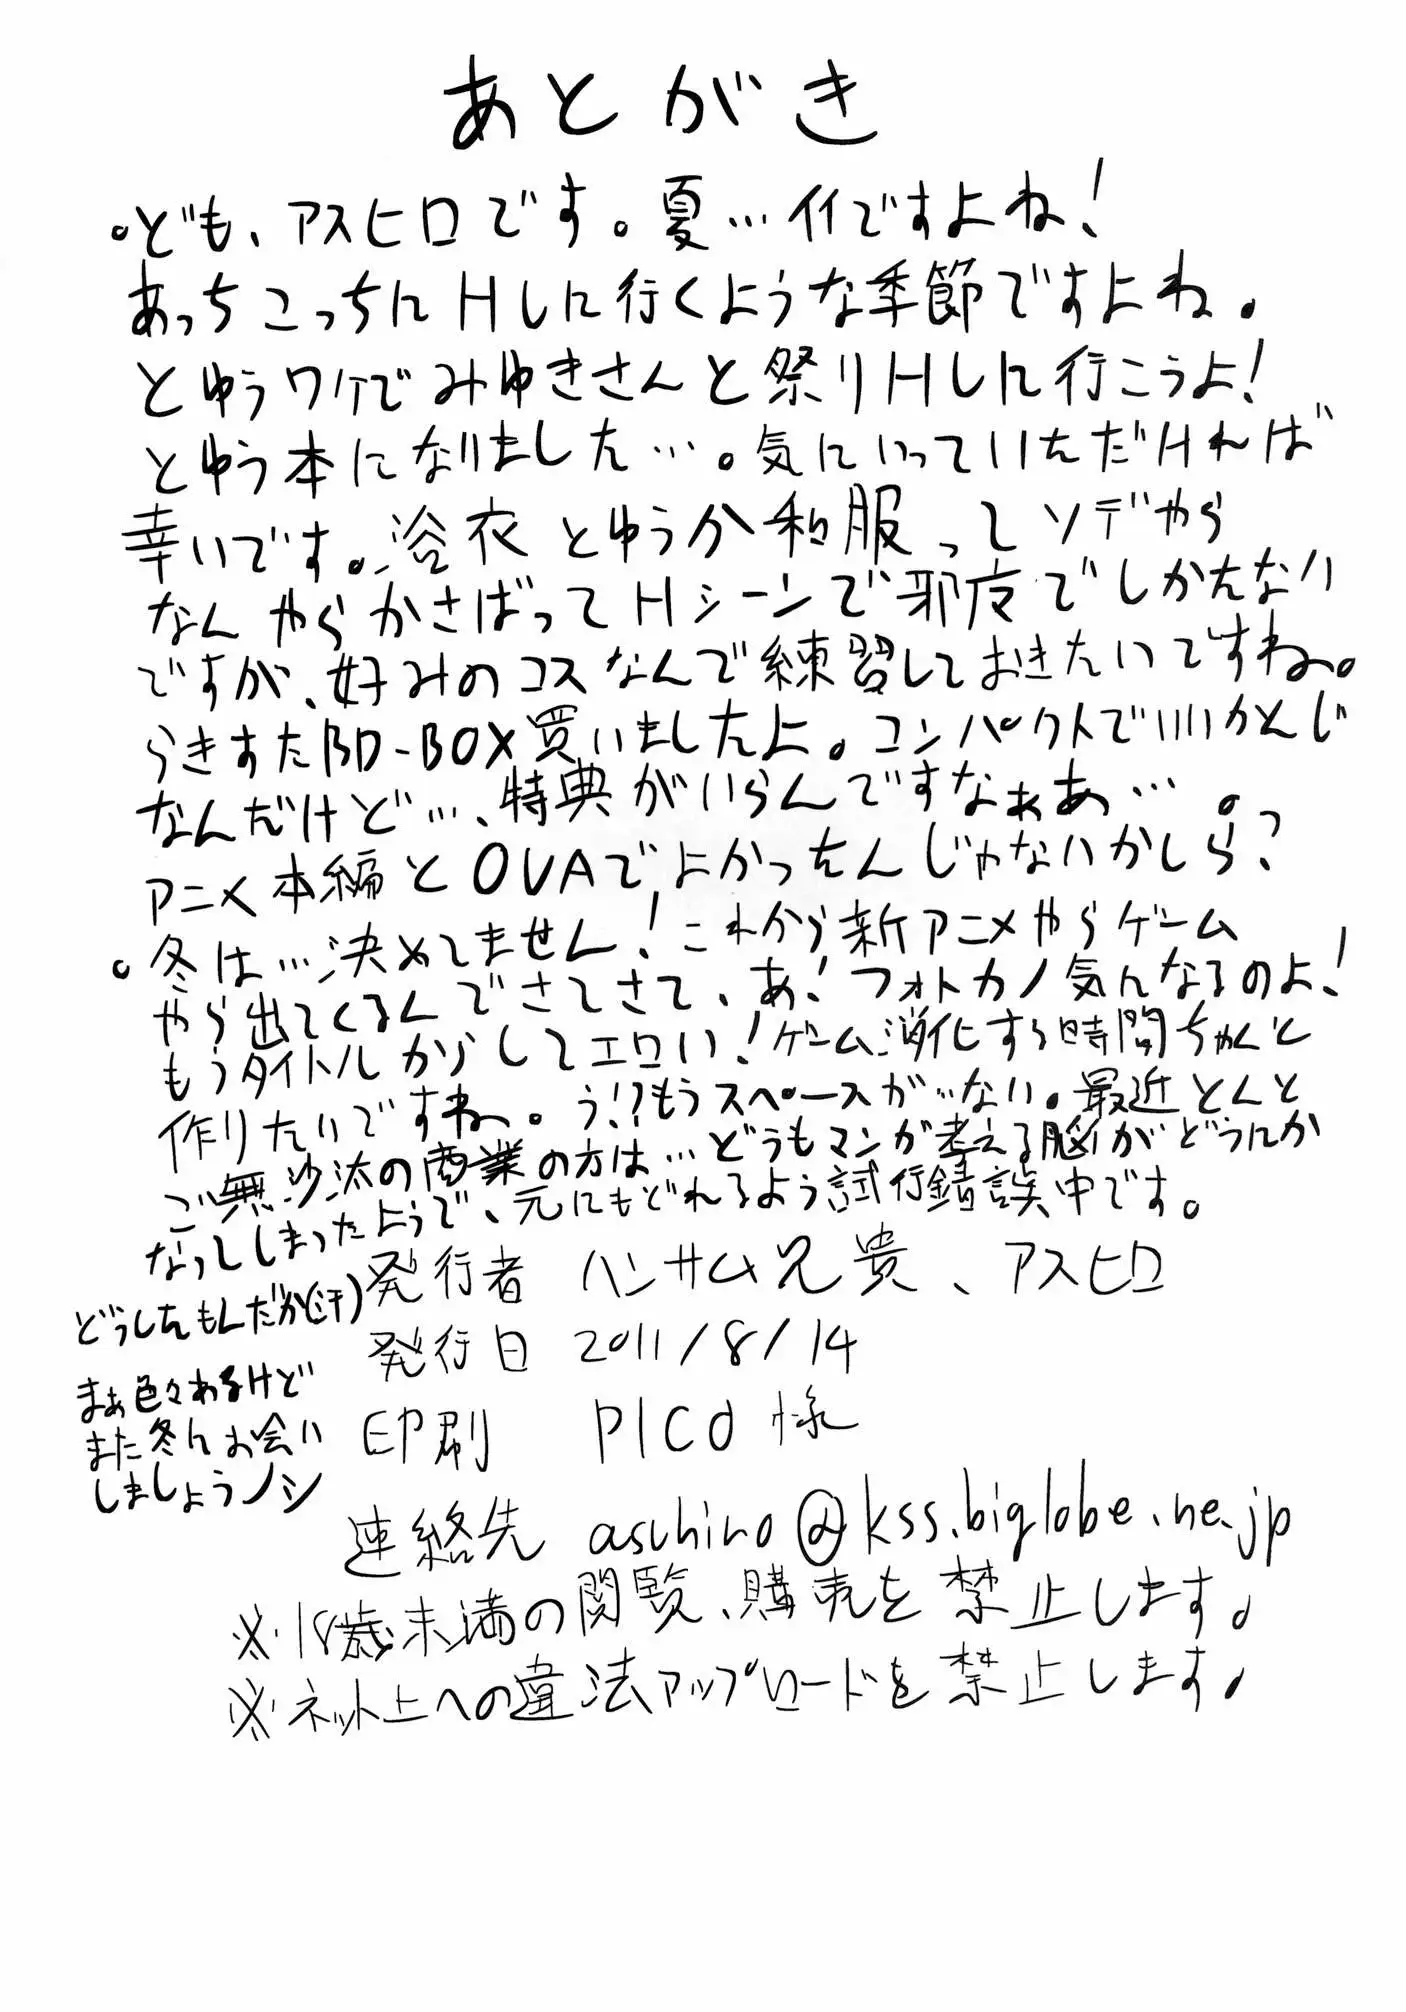 あとがき
。ども、アスヒロです。夏…イイですよね!
あっちこっちにHしに行くような季節ですよね。
とゆうワケでみゆきさんと祭りHしに行こうよ!
とゆう本になりました…。気にいっていただければ
幸いです。浴衣とゆうか和服ってソデやら
なんやらかさばってHシーンで邪魔でしかたない
ですが、好みのコスなんで練習しておきたいですね。
らきすたBD-BOX買いましたよ。コンパクトでいいかんじ
なんだけど…、特典がいらんですなぁあ…。
アニメ本編とOVAでよかったんじゃないかしら?
。冬は…決めてません!これから新アニメやらゲーム
やら出てくるんでさてさて、あ!フォトカノ気んなるのよ!
もうタイトルからしてエロい!ゲーム消化する時間ちゃんと
作りたいですね。う!?もうスペースが…ない。最近とんと
ご無沙汰の商業の方は…どうもマンが考える脳がどうにか
なってしまったようで、元にもどれるよう試行錯誤中です。
どうしたもんだか(汗)
まぁ色々あるけど
また冬にお会い
しましょうノシ
発行者 ハンサム兄貴、アスヒロ
発行日 2011/8/14
印刷 PICO様
連絡先 asuhiro@kss.biglobe.ne.jp
※18歳未満の閲覧、購売を禁止します。
※ネット上への違法アップロードを禁止します。